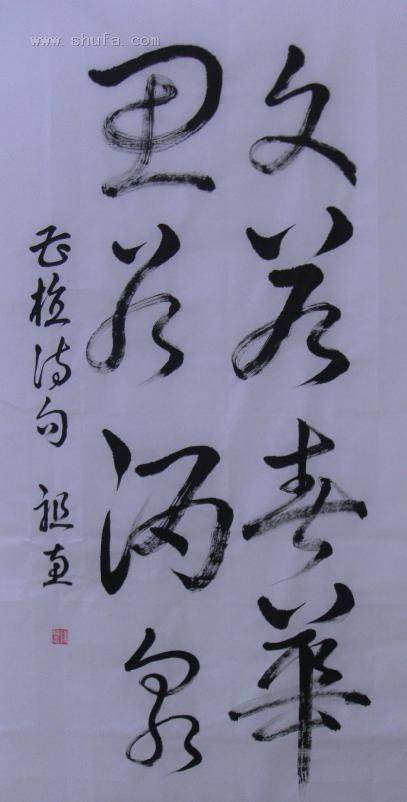 www.shufa.com
文若春華
思若涌泉
曹植詩句 祖